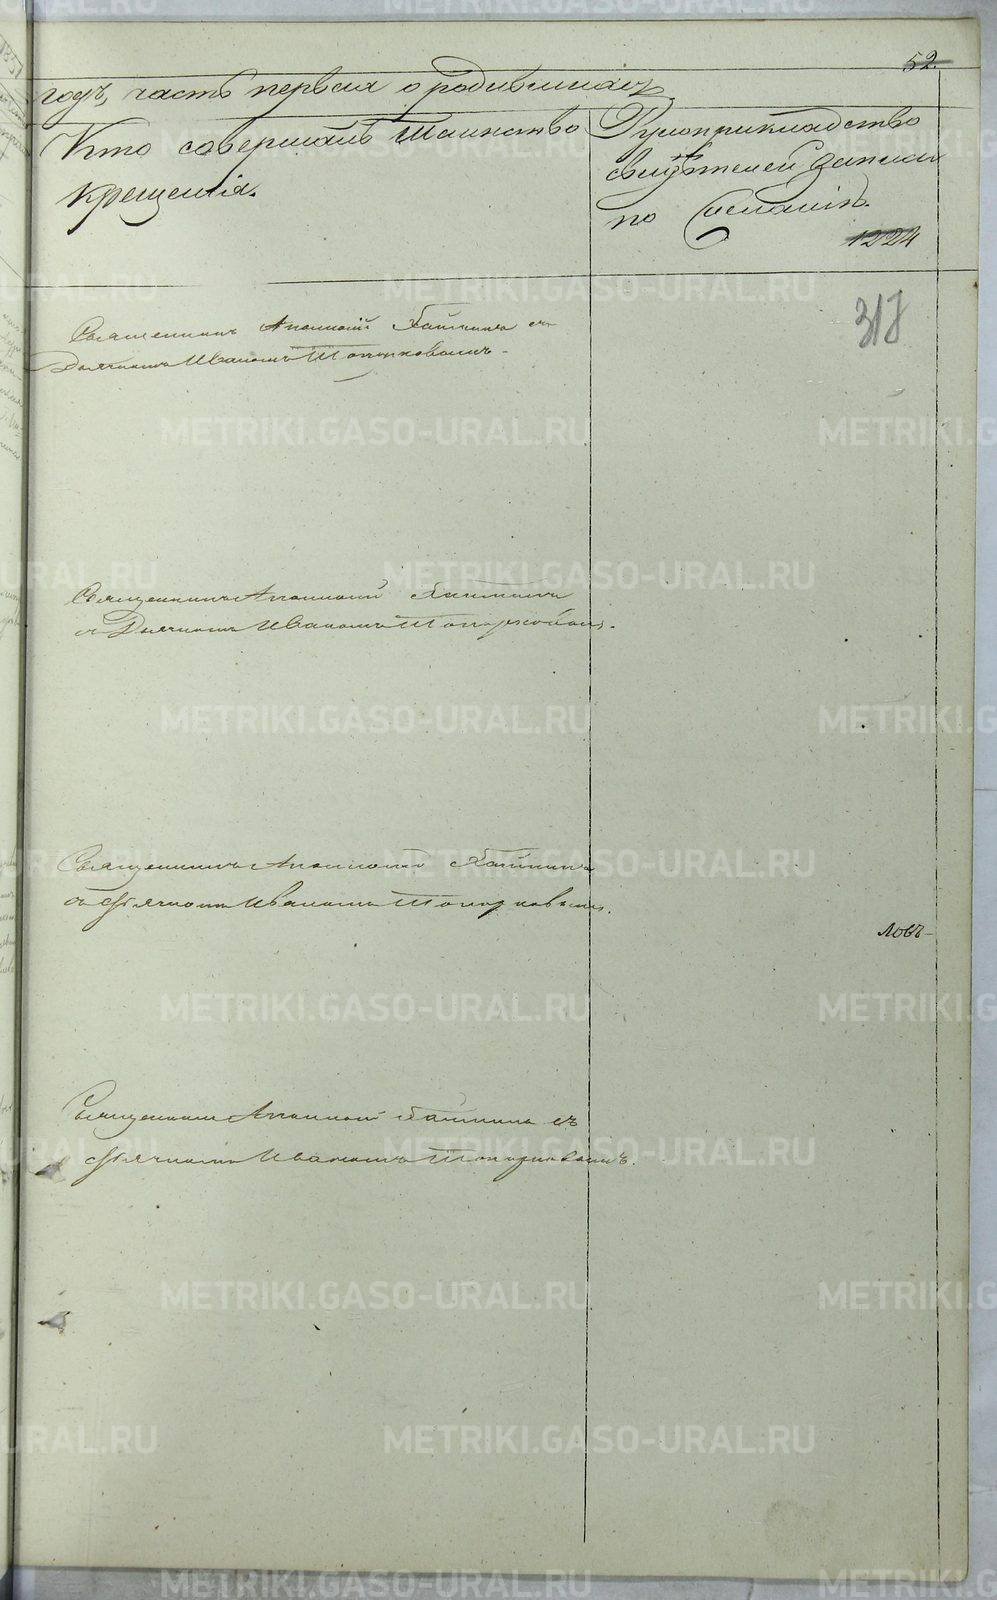 52.
годъ, часть первая о родившихся
Кто совершалъ таинство
крещенія.
Рукоприкладство
свидѣтелей записи
по желанію.
1224
318
Священникъ Аполлоній съ
Дьячкомъ Иваномъ Топорковымъ.
Священникъ Аполлоній
съ Дьячкомъ Иваномъ Топорковымъ.
Священникъ Аполлоній
съ Дьячкомъ Иваномъ Топорковымъ.
ловъ
Священникъ Аполлоній съ
Дьячкомъ Иваномъ Топорковымъ.
METRIKI.GASO-URAL.RU